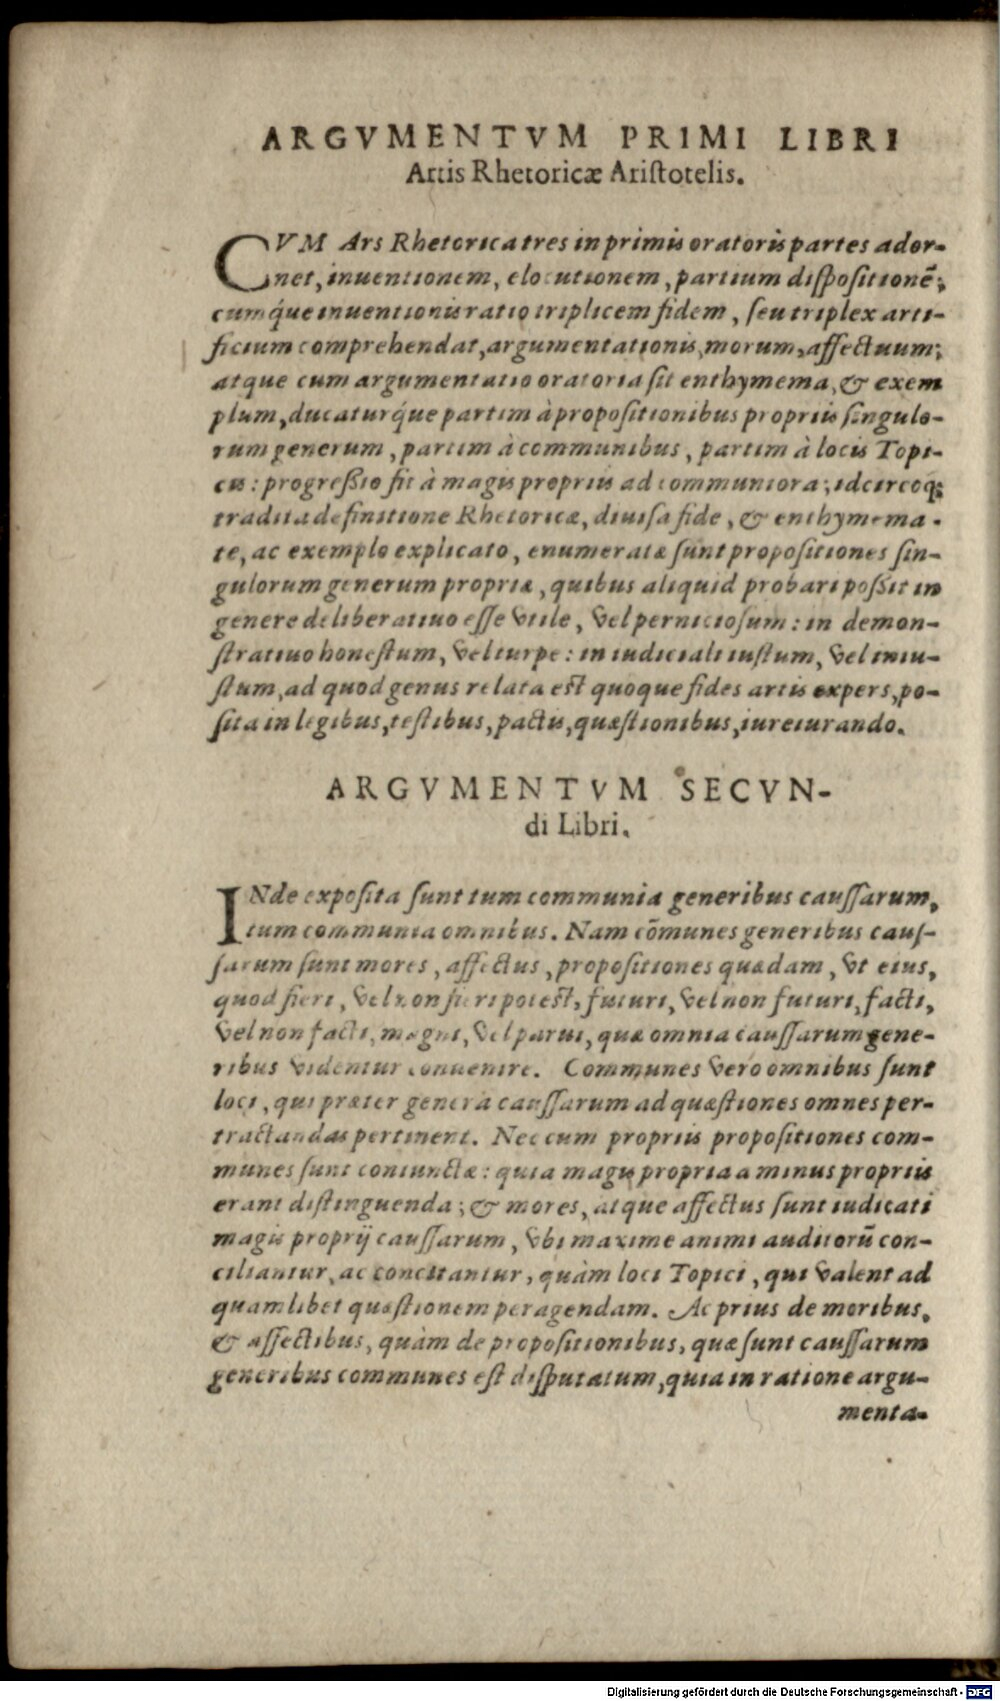 ARGVMENTVM PRIMI LIBRI
Artis Rhetoricæ Aristotelis.
CVM Ars Rhetorica tres in primis oratoris partes ador-
net, inuentionem, elocutionem, partium dispositionē;
cumq́ue inuentionis ratio triplicem fidem, seu triplex arti-
ficium comprehendat, argumentationis, morum, affectuum;
atque cum argumentatio oratoria sit enthymema, & exem
plum, ducaturq́ue partim à propositionibus propriis singulo-
rum generum, partim à communibus, partim à locis Topi-
cis: progreßio fit à magis propriis ad communiora; idcircoq;
tradita definitione Rhetoricæ, diuisa fide, & enthymema-
te, ac exemplo explicato, enumeratæ sunt propositiones sin-
gulorum generum propriæ, quibus aliquid probari poßit in
genere deliberatiuo esse vtile, vel perniciosum: in demon-
stratiuo honestum, vel turpe: in iudiciali iustum, vel iniu-
stum, ad quod genus relata est quoque fides artis expers, po-
sita in legibus, testibus, pactis, quæstionibus, iureiurando.
ARGVMENTVM SECVN-
di Libri.
INde exposita sunt tum communia generibus caussarum,
tum communia omnibus. Nam cōmunes generibus caus-
sarum sunt mores, affectus, propositiones quædam, vt eius,
quod fieri, vel non fieri potest, futuri, vel non futuri, facti,
vel non facti, magni, vel parui, quæ omnia caussarum gene-
ribus videntur conuenire. Communes vero omnibus sunt
loci, qui præter genera caussarum ad quæstiones omnes per-
tractandas pertinent. Nec cum propriis propositiones com-
munes sunt coniunctæ: quia magis propria a minus propriis
erant distinguenda; & mores, atque affectus sunt iudicati
magis proprij caussarum, vbi maxime animi auditorū con-
ciliantur, ac concitantur, quàm loci Topici, qui valent ad
quamlibet quæstionem peragendam. Ac prius de moribus,
& affectibus, quàm de propositionibus, quæ sunt caussarum
generibus communes est disputatum, quia in ratione argu-
menta-
Digitalisierung gefördert durch die Deutsche Forschungsgemeinschaft - DFG